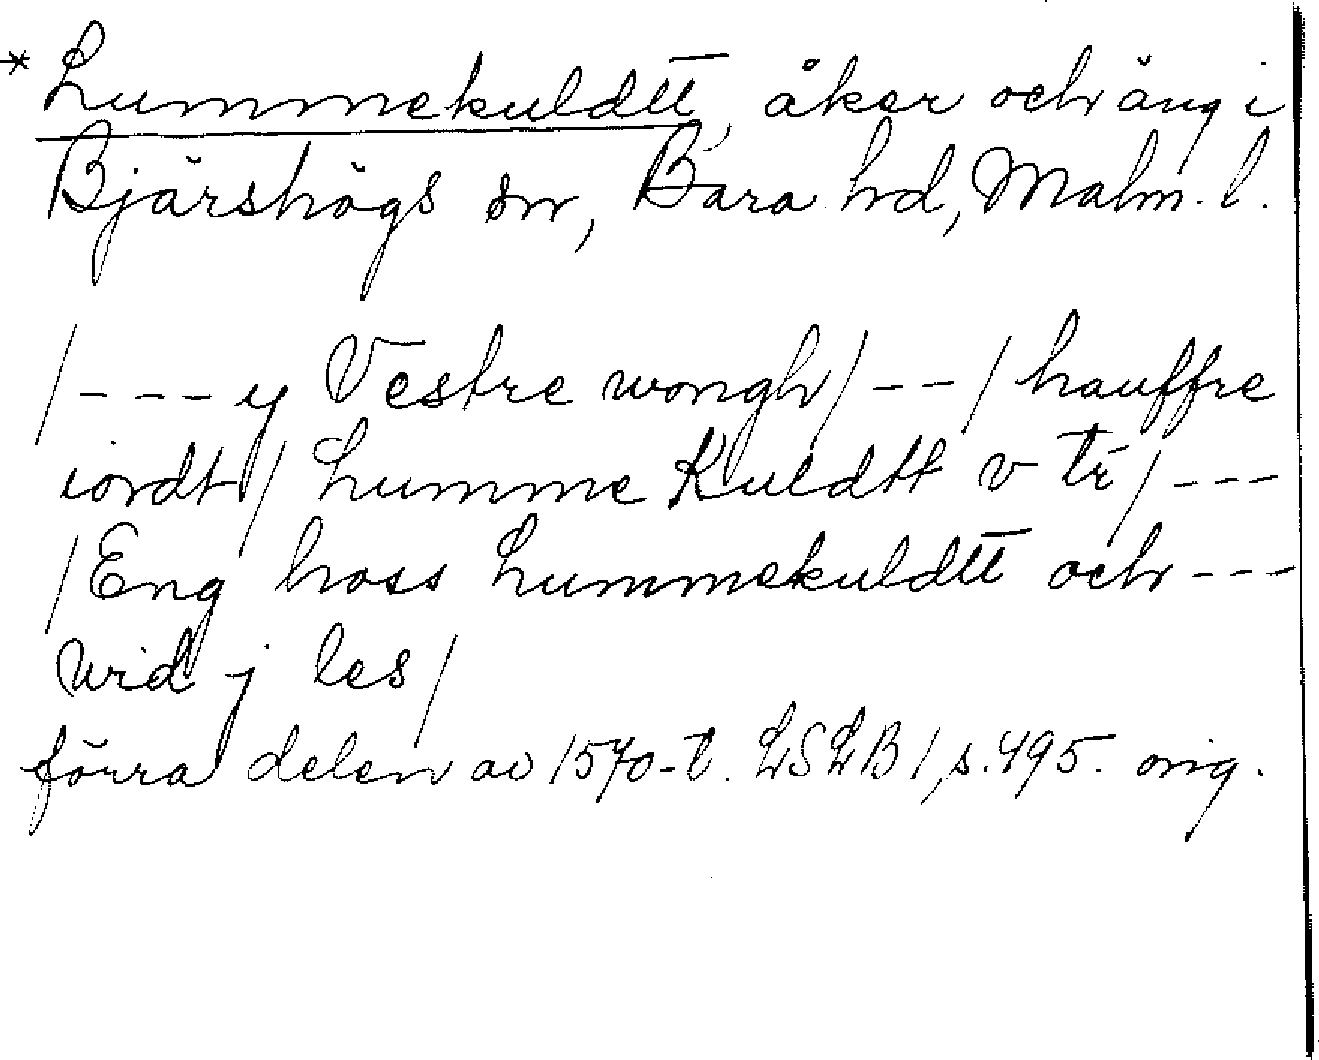 * Lummekuldtt, åker och äng i
Bjärshögs sn, Bara hd, Malm. l.
/---y Vestre wongh/--/hauffre
iordt/ Lumme Kuldtt v tr/---
/Eng hoss Lummekuldtt och---
wid j les/
förra delen av 1570-t. LSLB 1, s. 495. orig.